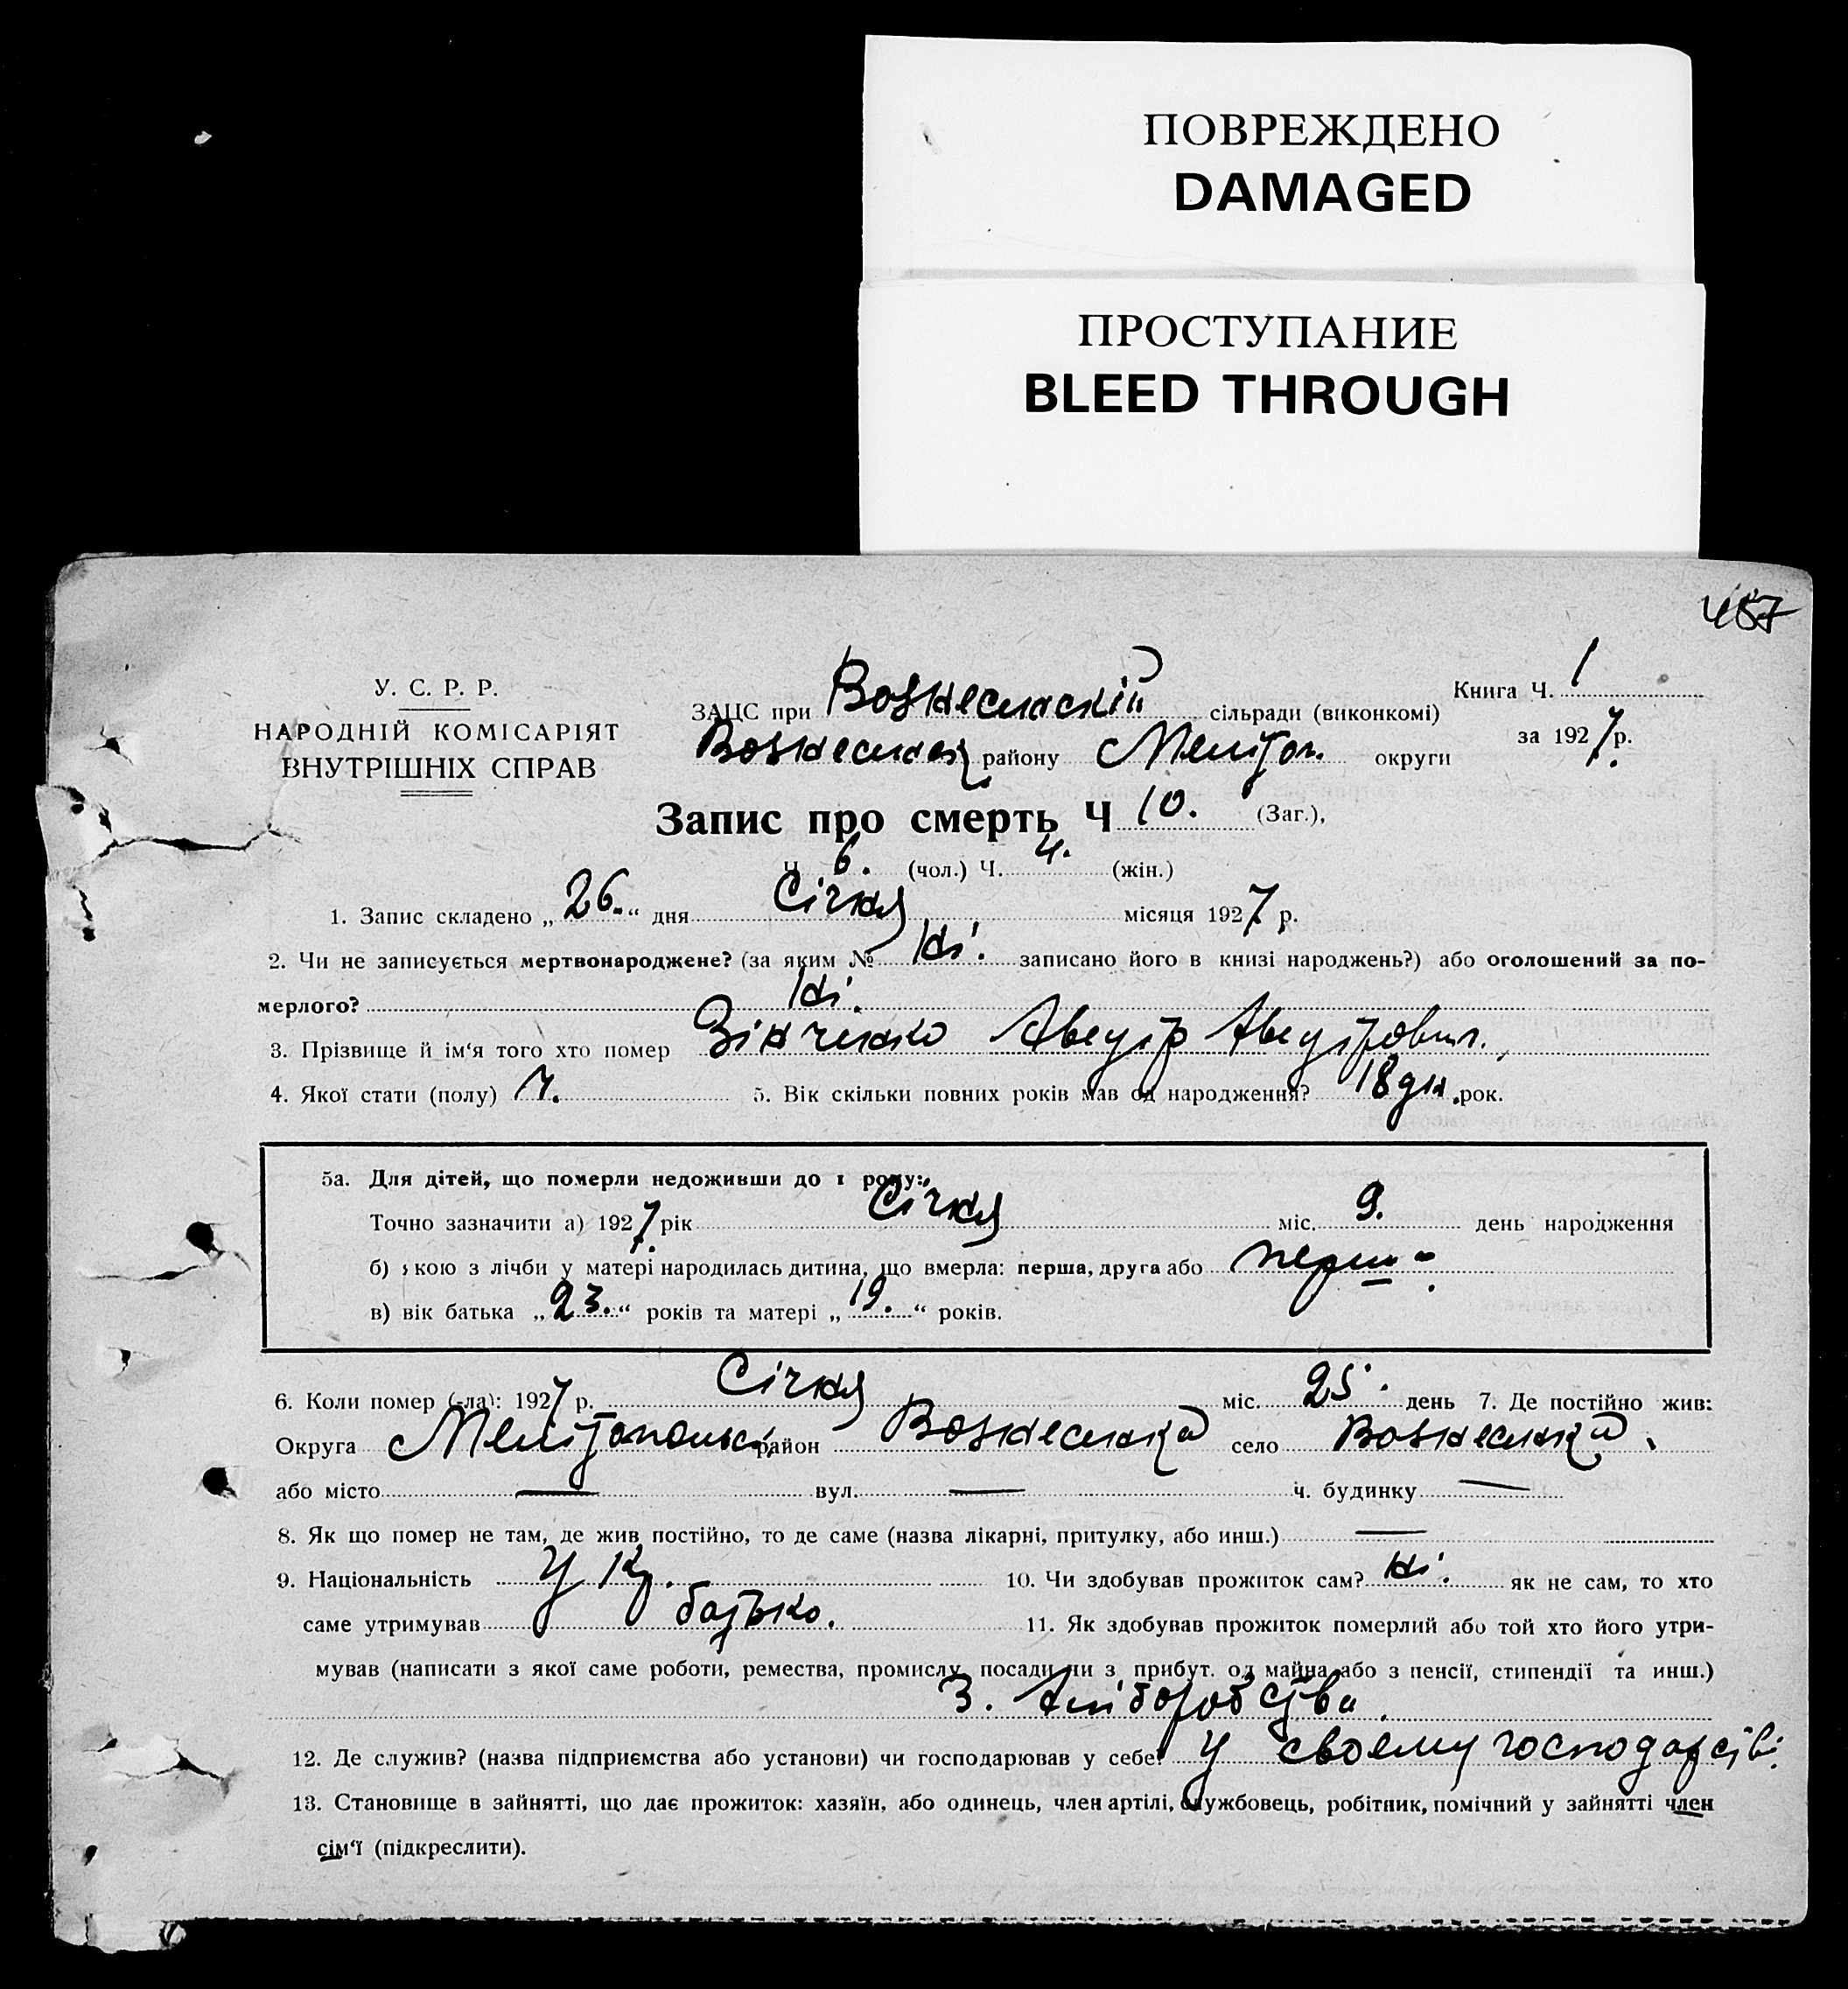 ПОВРЕЖДЕНО
DAMAGED
ПРОСТУПАНИЕ
BLEED THROUGH
487
У. С. Р. Р.
НАРОДНІЙ КОМІСАРІЯТ
ВНУТРІШНІХ СПРАВ
ЗАЦС при Вознесенскій сільради (виконкомі)
Книга Ч. 1
района Мелітоп. округи
за 1927 р.
Запис про смерть Ч 10. (Заг.),
Ч. 6. (чол.) Ч. 4. (жін.)
1. Запис складено „26.“ дня Січня місяця 1927 р.
2. Чи не записується мертвонароджене? (за яким № Ні. записано його в книзі народжень?) або оголошений за по-
мерлого? Ні.
3. Прізвище й ім‘я того хто помер Зінченко Авдуір Авдуірович.
4. Якої стати (полу) Ч. 5. Вік скільки повних років мав од народження? 18 дн. рок.
5а. Для дітей, що померли недоживши до 1 року:
Точно зазначити а) 1927 рік Січня міс. 9. день народження
б) якою з лічби у матері народилась дитина, що вмерла: перша, друга або перша
в) вік батька „23.“ років та матері „19.“ років.
6. Коли помер (-ла): 1927 р. Січня міс. 25. день 7. Де постійно жив:
Округа Мелітопольск. район Вознесенка село Вознесенка.
або місто — вул. — ч. будинку —
8. Як що помер не там, де жив постійно, то де саме (назва лікарні, притулку, або инш.) —
9. Національність Укр. 10. Чи здобував прожиток сам? Ні. як не сам, то хто
саме утримував батько. 11. Як здобував прожиток померлий або той хто його утри-
мував (написати з якої саме роботи, ремества, промислу, посади чи з прибут. од майна або з пенсії, стипендії та инш.)
З. хліборобства.
12. Де служив? (назва підприємства або установи) чи господарював у себе? У своему господарстві.
13. Становище в зайнятті, що дає прожиток: хазяїн, або одинець, член артілі, службовець, робітник, помічний у зайнятті член
сім‘ї (підкреслити).